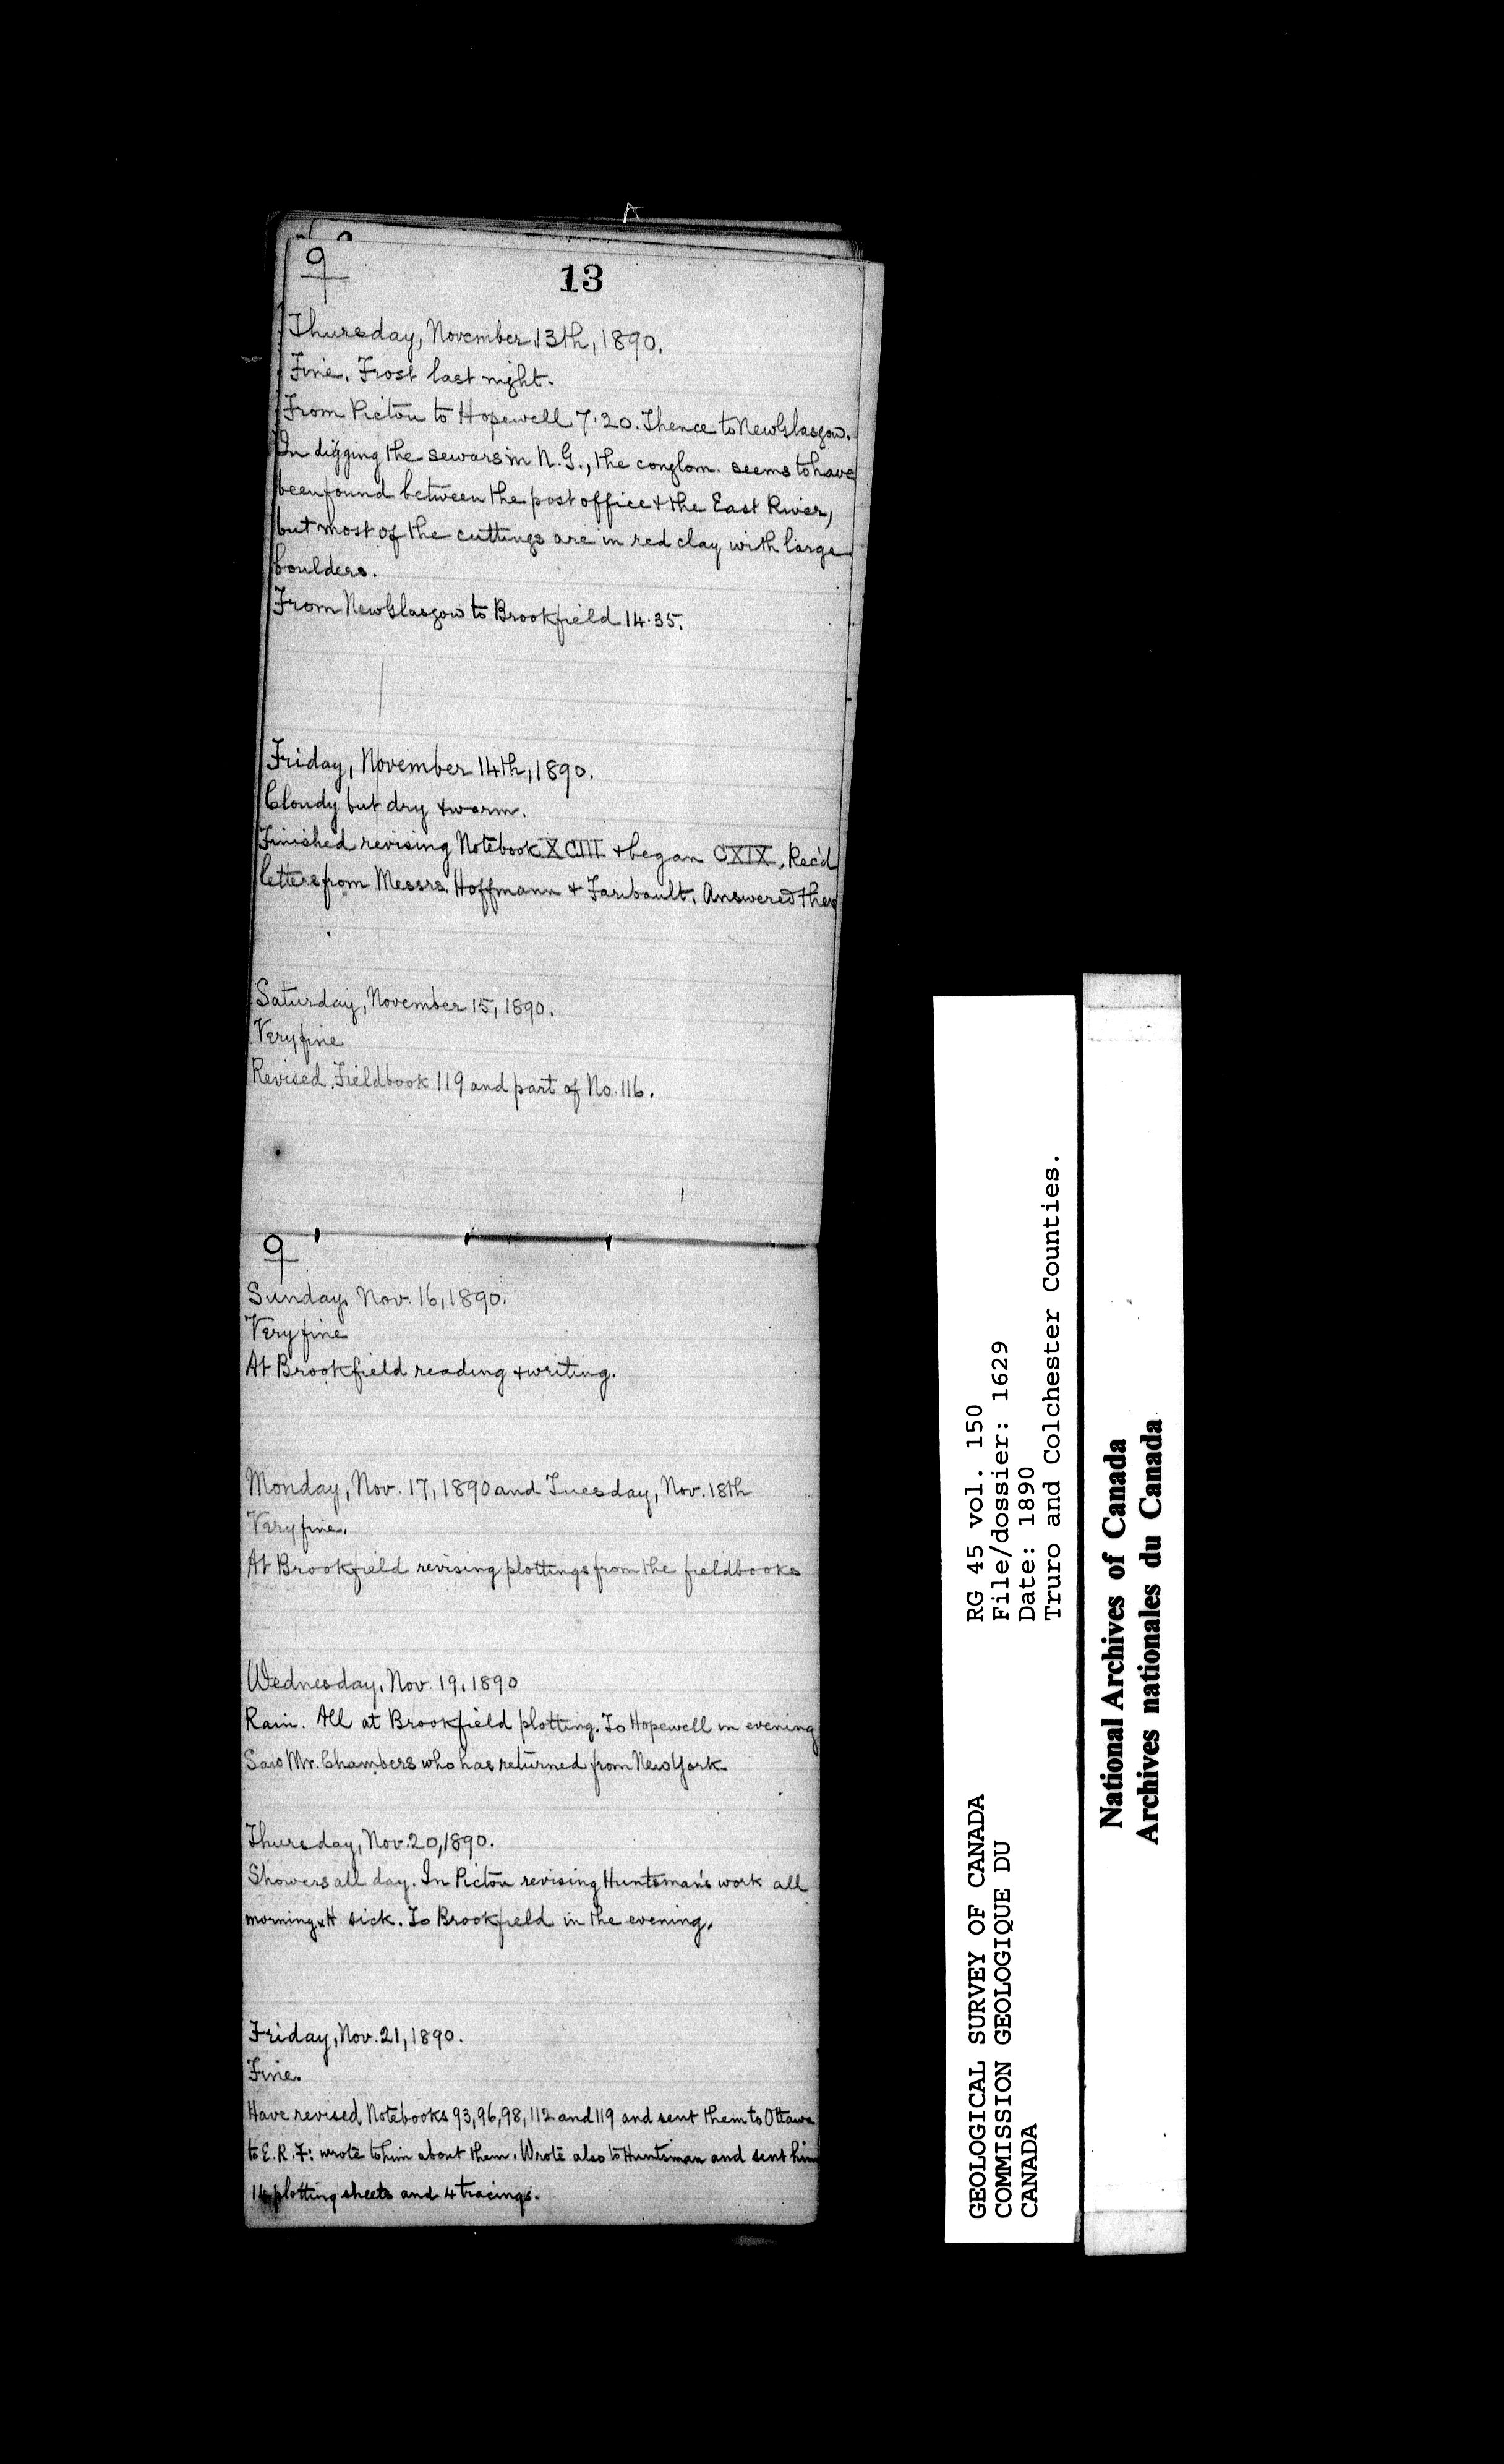 9
13
Thursday, November 13th, 1890.
Fine. Frost last night.
From Pictou to Hopewell 7.20. Thence to New Glasgow.
In digging the sewars in N.G., the conglom. seems to have
been found between the post office & the East River,
but most of the cuttings are in red clay with large
boulders.
From New Glasgow to Brookfield 14.35.
Friday, November 14th, 1890.
Cloudy but dry & warm.
Finished revising Notebook XCIII & began CXIX. Rec'd
letters from Messrs. Hoffmann & Faribault. Answered them
Saturday, November 15, 1890.
Very fine
Revised Fieldbook 119 and part of No. 116.
9
Sunday, Nov. 16, 1890.
Very fine
At Brookfield reading & writing.
Monday, Nov. 17, 1890 and Tuesday, Nov. 18th
Very fine.
At Brookfield revising plottings from the fieldbooks
Wednesday, Nov. 19, 1890
Rain. All at Brookfield plotting. To Hopewell in evening
Saw Mr. Chambers who has returned from New York
Thursday, Nov. 20, 1890.
Showers all day. In Pictou revising Huntsman's work all
morning. H sick. To Brookfield in the evening.
Friday, Nov. 21, 1890.
Fine.
Have revised Notebooks 93, 96, 98, 112 and 119 and sent them to Ottawa
to E.R.F.: wrote to him about them. Wrote also to Huntsman and sent him
plotting sheets and 4 tracings.
GEOLOGICAL SURVEY OF CANADA
COMMISSION GEOLOGIQUE DU
CANADA
RG 45 vol. 150
File/dossier: 1629
Date: 1890
Truro and Colchester Counties.
National Archives of Canada
Archives nationales du Canada